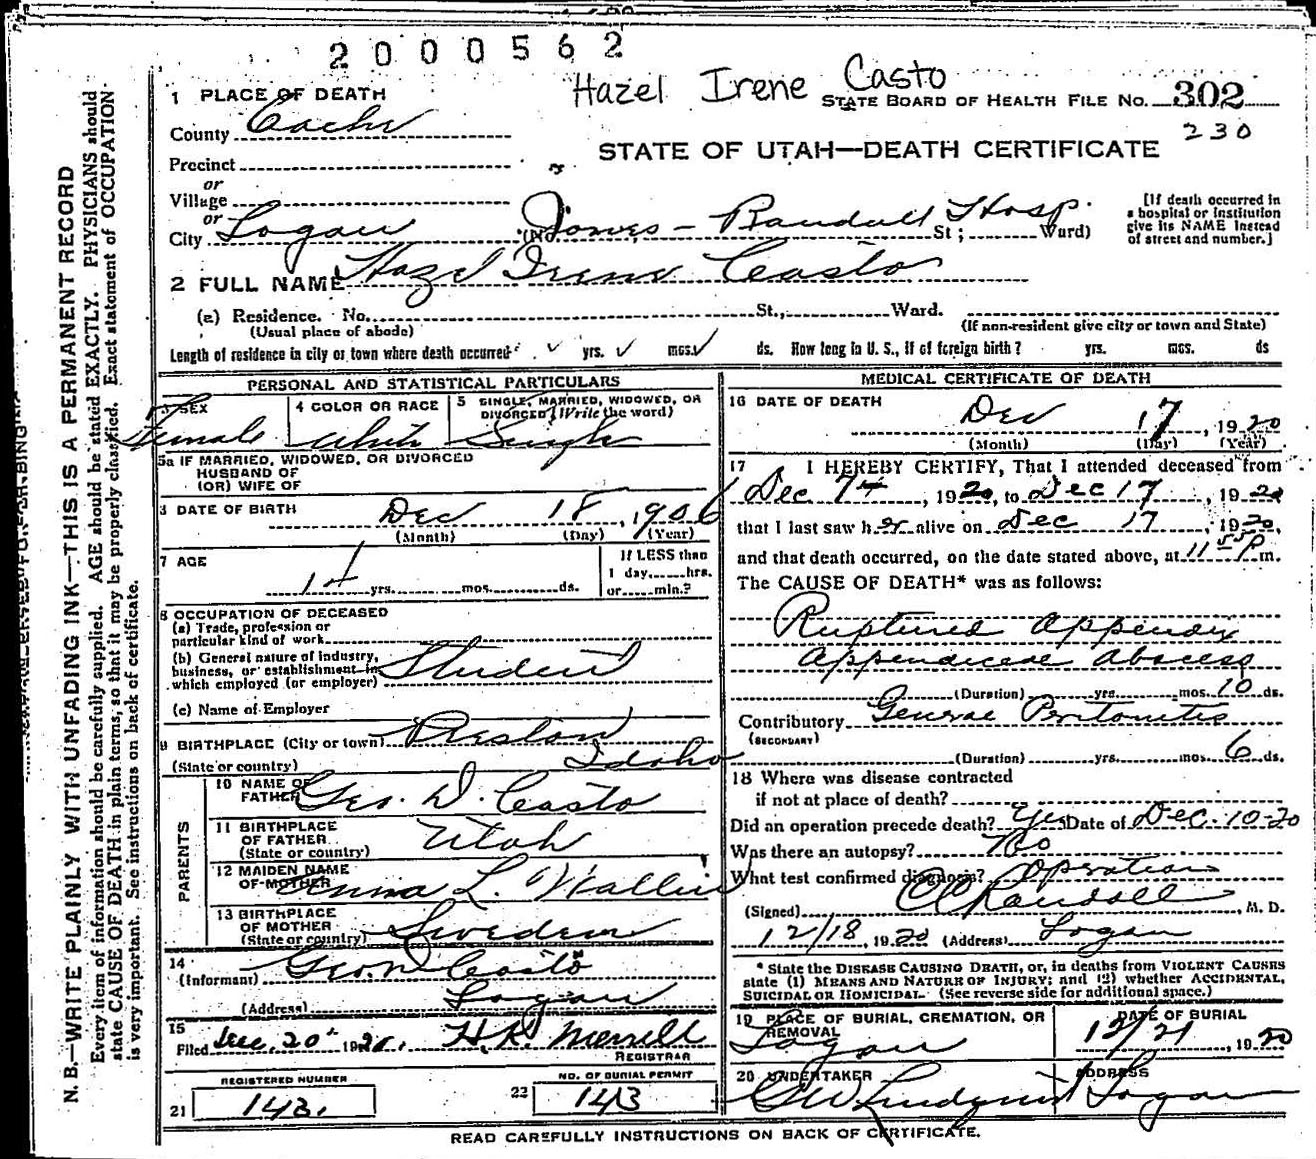 2000562
Hazel Irene Casto
STATE BOARD OF HEALTH FILE NO. 302
230
STATE OF UTAH—DEATH CERTIFICATE
1 PLACE OF DEATH
County Cache
Precinct
or
Village
or
City Logan (No. Jones-Randall Hosp. St; Ward)
[If death occurred in
a hospital or institution
give its NAME instead
of street and number.]
2 FULL NAME Hazel Irene Casto
(a) Residence. No. St., Ward.
(Usual place of abode) (If non-resident give city or town and State)
Length of residence in city or town where death occurred yrs. mos. ds. How long in U. S., if of foreign birth? yrs. mos. ds
PERSONAL AND STATISTICAL PARTICULARS
3 SEX
Female
4 COLOR OR RACE
White
5 SINGLE, MARRIED, WIDOWED, OR
DIVORCED (Write the word)
Single
5a IF MARRIED, WIDOWED, OR DIVORCED
HUSBAND OF
(OR) WIFE OF
DATE OF BIRTH
Dec 18, 1906
(Month) (Day) (Year)
7 AGE
14 yrs. mos. ds.
If LESS than
1 day hrs.
or min.?
8 OCCUPATION OF DECEASED
(a) Trade, profession or
particular kind of work
(b) General nature of industry,
business, or establishment in
which employed (or employer) Student
(c) Name of Employer
9 BIRTHPLACE (City or town) Preston
(State or country) Idaho
PARENTS
10 NAME OF
FATHER Geo. D. Casto
11 BIRTHPLACE
OF FATHER
(State or country) Utah
12 MAIDEN NAME
OF MOTHER Emma L. Wallin
13 BIRTHPLACE
OF MOTHER
(State or country) Sweden
14
(Informant) Geo. D. Casto
(Address) Logan
15
Filed Dec. 20th 1920. H.K. Merrill
REGISTRAR
REGISTERED NUMBER
21 143.
NO. OF BURIAL PERMIT
22 143
MEDICAL CERTIFICATE OF DEATH
16 DATE OF DEATH
Dec 17, 1920
(Month) (Day) (Year)
17 I HEREBY CERTIFY, That I attended deceased from
Dec 7th, 1920, to Dec 17, 1920
that I last saw her alive on Dec 17, 1920,
and that death occurred, on the date stated above, at 11 55 P m.
The CAUSE OF DEATH* was as follows:
Ruptured Appendix
Appendiceal Abscess
(Duration) yrs. mos. 10 ds.
Contributory General Peritonitis
(SECONDARY)
(Duration) yrs. mos. 6 ds.
18 Where was disease contracted
if not at place of death?
Did an operation precede death? Yes Date of Dec. 10-20
Was there an autopsy? No
What test confirmed diagnosis? Operation
(Signed) Randall, M. D.
12/18, 1920 (Address) Logan
* State the DISEASE CAUSING DEATH, or, in deaths from VIOLENT CAUSES
state (1) MEANS AND NATURE OF INJURY; and (2) whether ACCIDENTAL,
SUICIDAL OR HOMICIDAL. (See reverse side for additional space.)
19 PLACE OF BURIAL, CREMATION, OR
REMOVAL
Logan
DATE OF BURIAL
12/21, 1920
20 UNDERTAKER
G W Lindquist
ADDRESS
Logan
READ CAREFULLY INSTRUCTIONS ON BACK OF CERTIFICATE.
N. B.—WRITE PLAINLY WITH UNFADING INK—THIS IS A PERMANENT RECORD
Every item of information should be carefully supplied. AGE should be stated EXACTLY. PHYSICIANS should
state CAUSE OF DEATH in plain terms, so that it may be properly classified. Exact statement of OCCUPATION
is very important. See instructions on back of certificate.